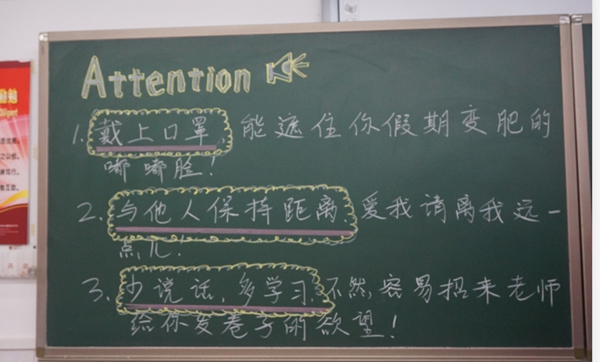 Attention
1. 戴上口罩, 能遮住你假期变肥的
嘟嘟脸!
2. 与他人保持距离, 爱我请离我远一
点儿!
3. 少说话, 多学习, 不然, 容易招来老师
给你发卷子的欲望!